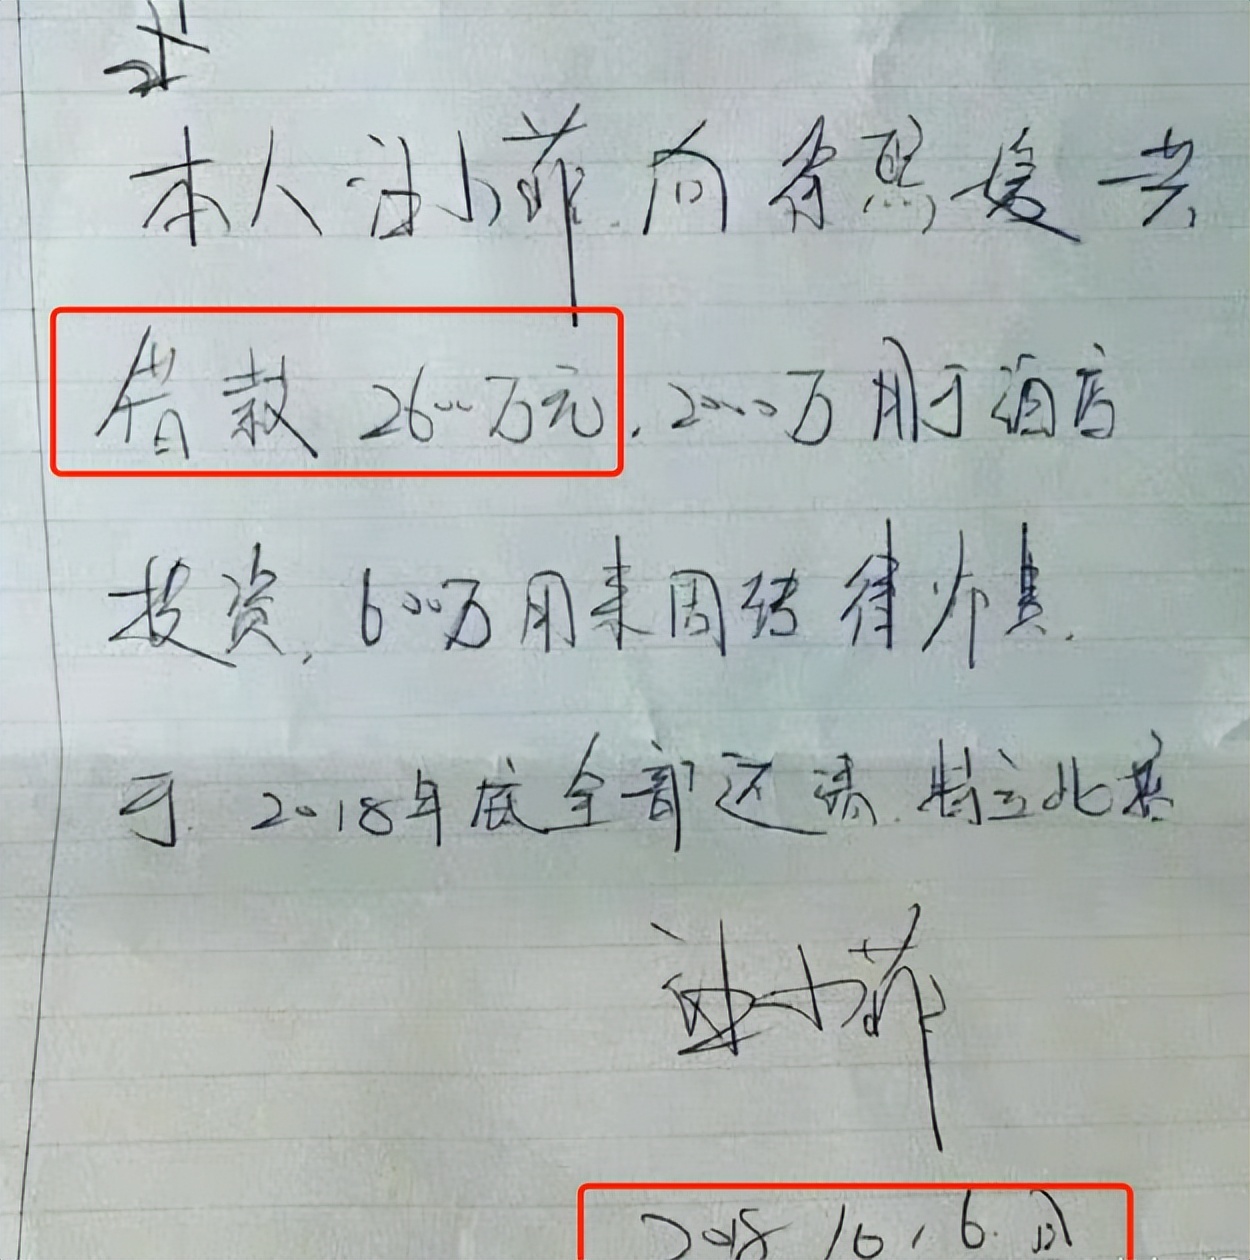 本人汪小菲.向徐熙媛共
借款2600万元.2000万用于酒店
投资,600万用来周转律师费.
于.2018年底全部还清.特立此据
汪小菲
2018 10,6.日